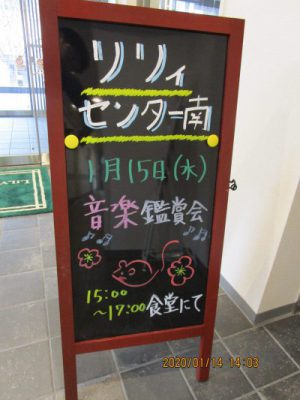 リリィ
センター南
1月15日(水)
音楽鑑賞会
15:00
～17:00 食堂にて
2020/01/14 14:03